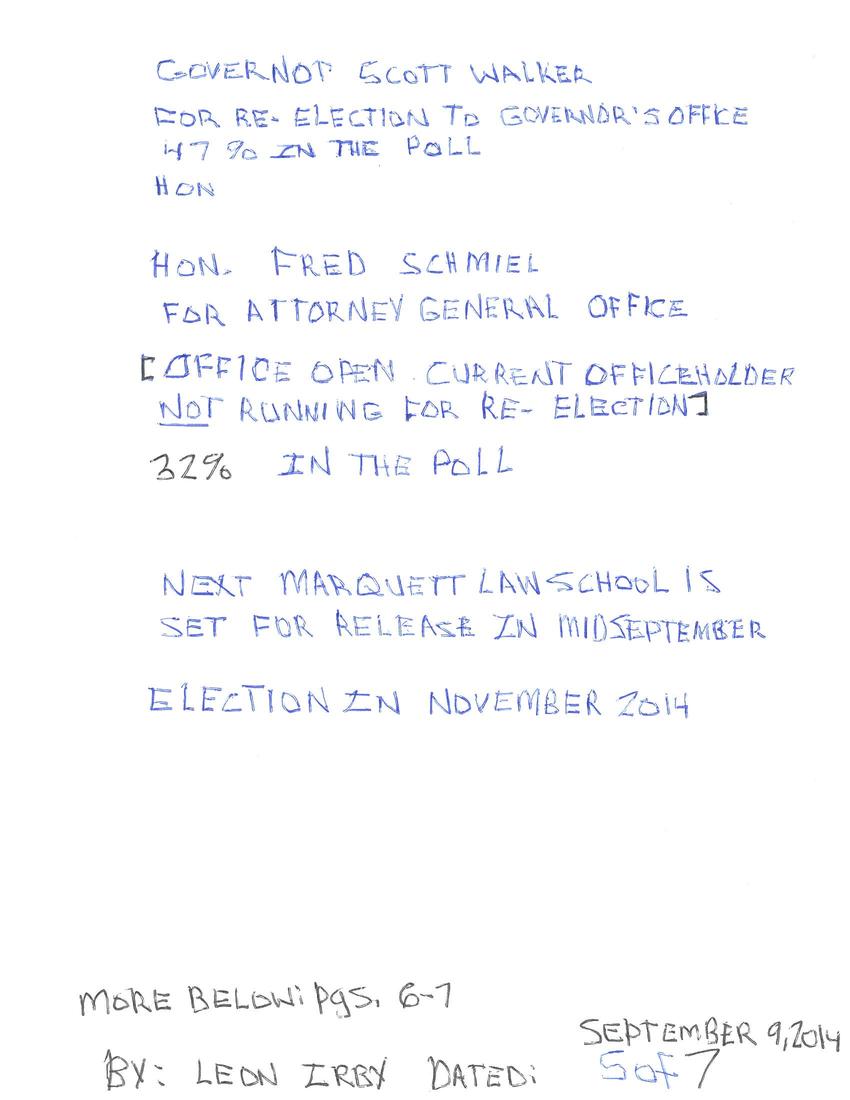 GOVERNOT SCOTT WALKER
FOR RE- ELECTION TO GOVERNOR'S OFFICE
47 % IN THE POLL
HON
HON. FRED SCHMIEL
FOR ATTORNEY GENERAL OFFICE
[OFFICE OPEN. CURRENT OFFICEHOLDER
NOT RUNNING FOR RE- ELECTION]
32% IN THE POLL
NEXT MARQUETT LAW SCHOOL IS
SET FOR RELEASE IN MIDSEPTEMBER
ELECTION IN NOVEMBER 2014
MORE BELOW: pgS. 6-7
SEPTEMBER 9, 2014
BY: LEON IRBY DATED: 5 of 7